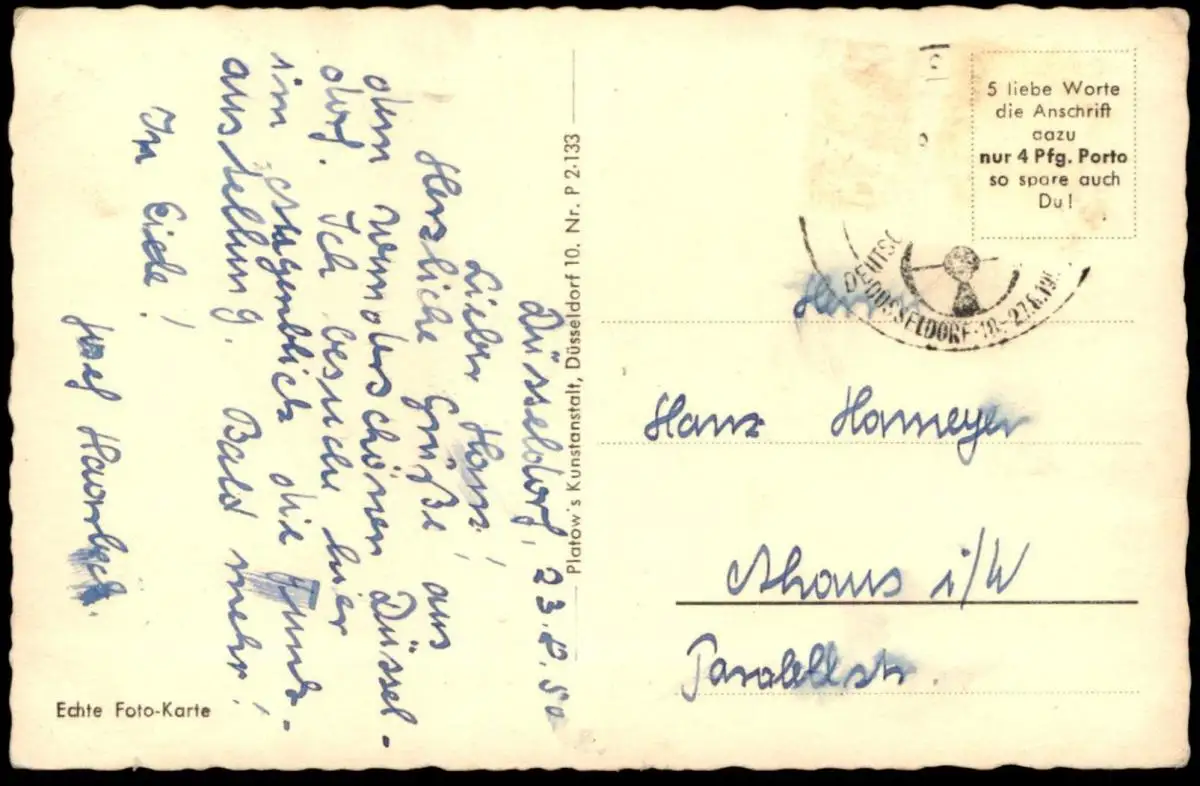 Düsseldorf, 23.8.50
Lieber Hans!
Herzliche Grüße aus
dem wunderschönen Düssel-
dorf. Ich besuche hier
im Augenblick die Funk-
austellung. Bald mehr!
In Eile!
Josef
Platow's Kunstanstalt, Düsseldorf 10. Nr. P 2-133
Echte Foto-Karte
5 liebe Worte
die Anschrift
dazu
nur 4 Pfg. Porto
so spare auch
Du!
DÜSSELDORF·18.-27.8.195
Herrn
Hans Hameyer
Ahaus i/W
Parallelstr.